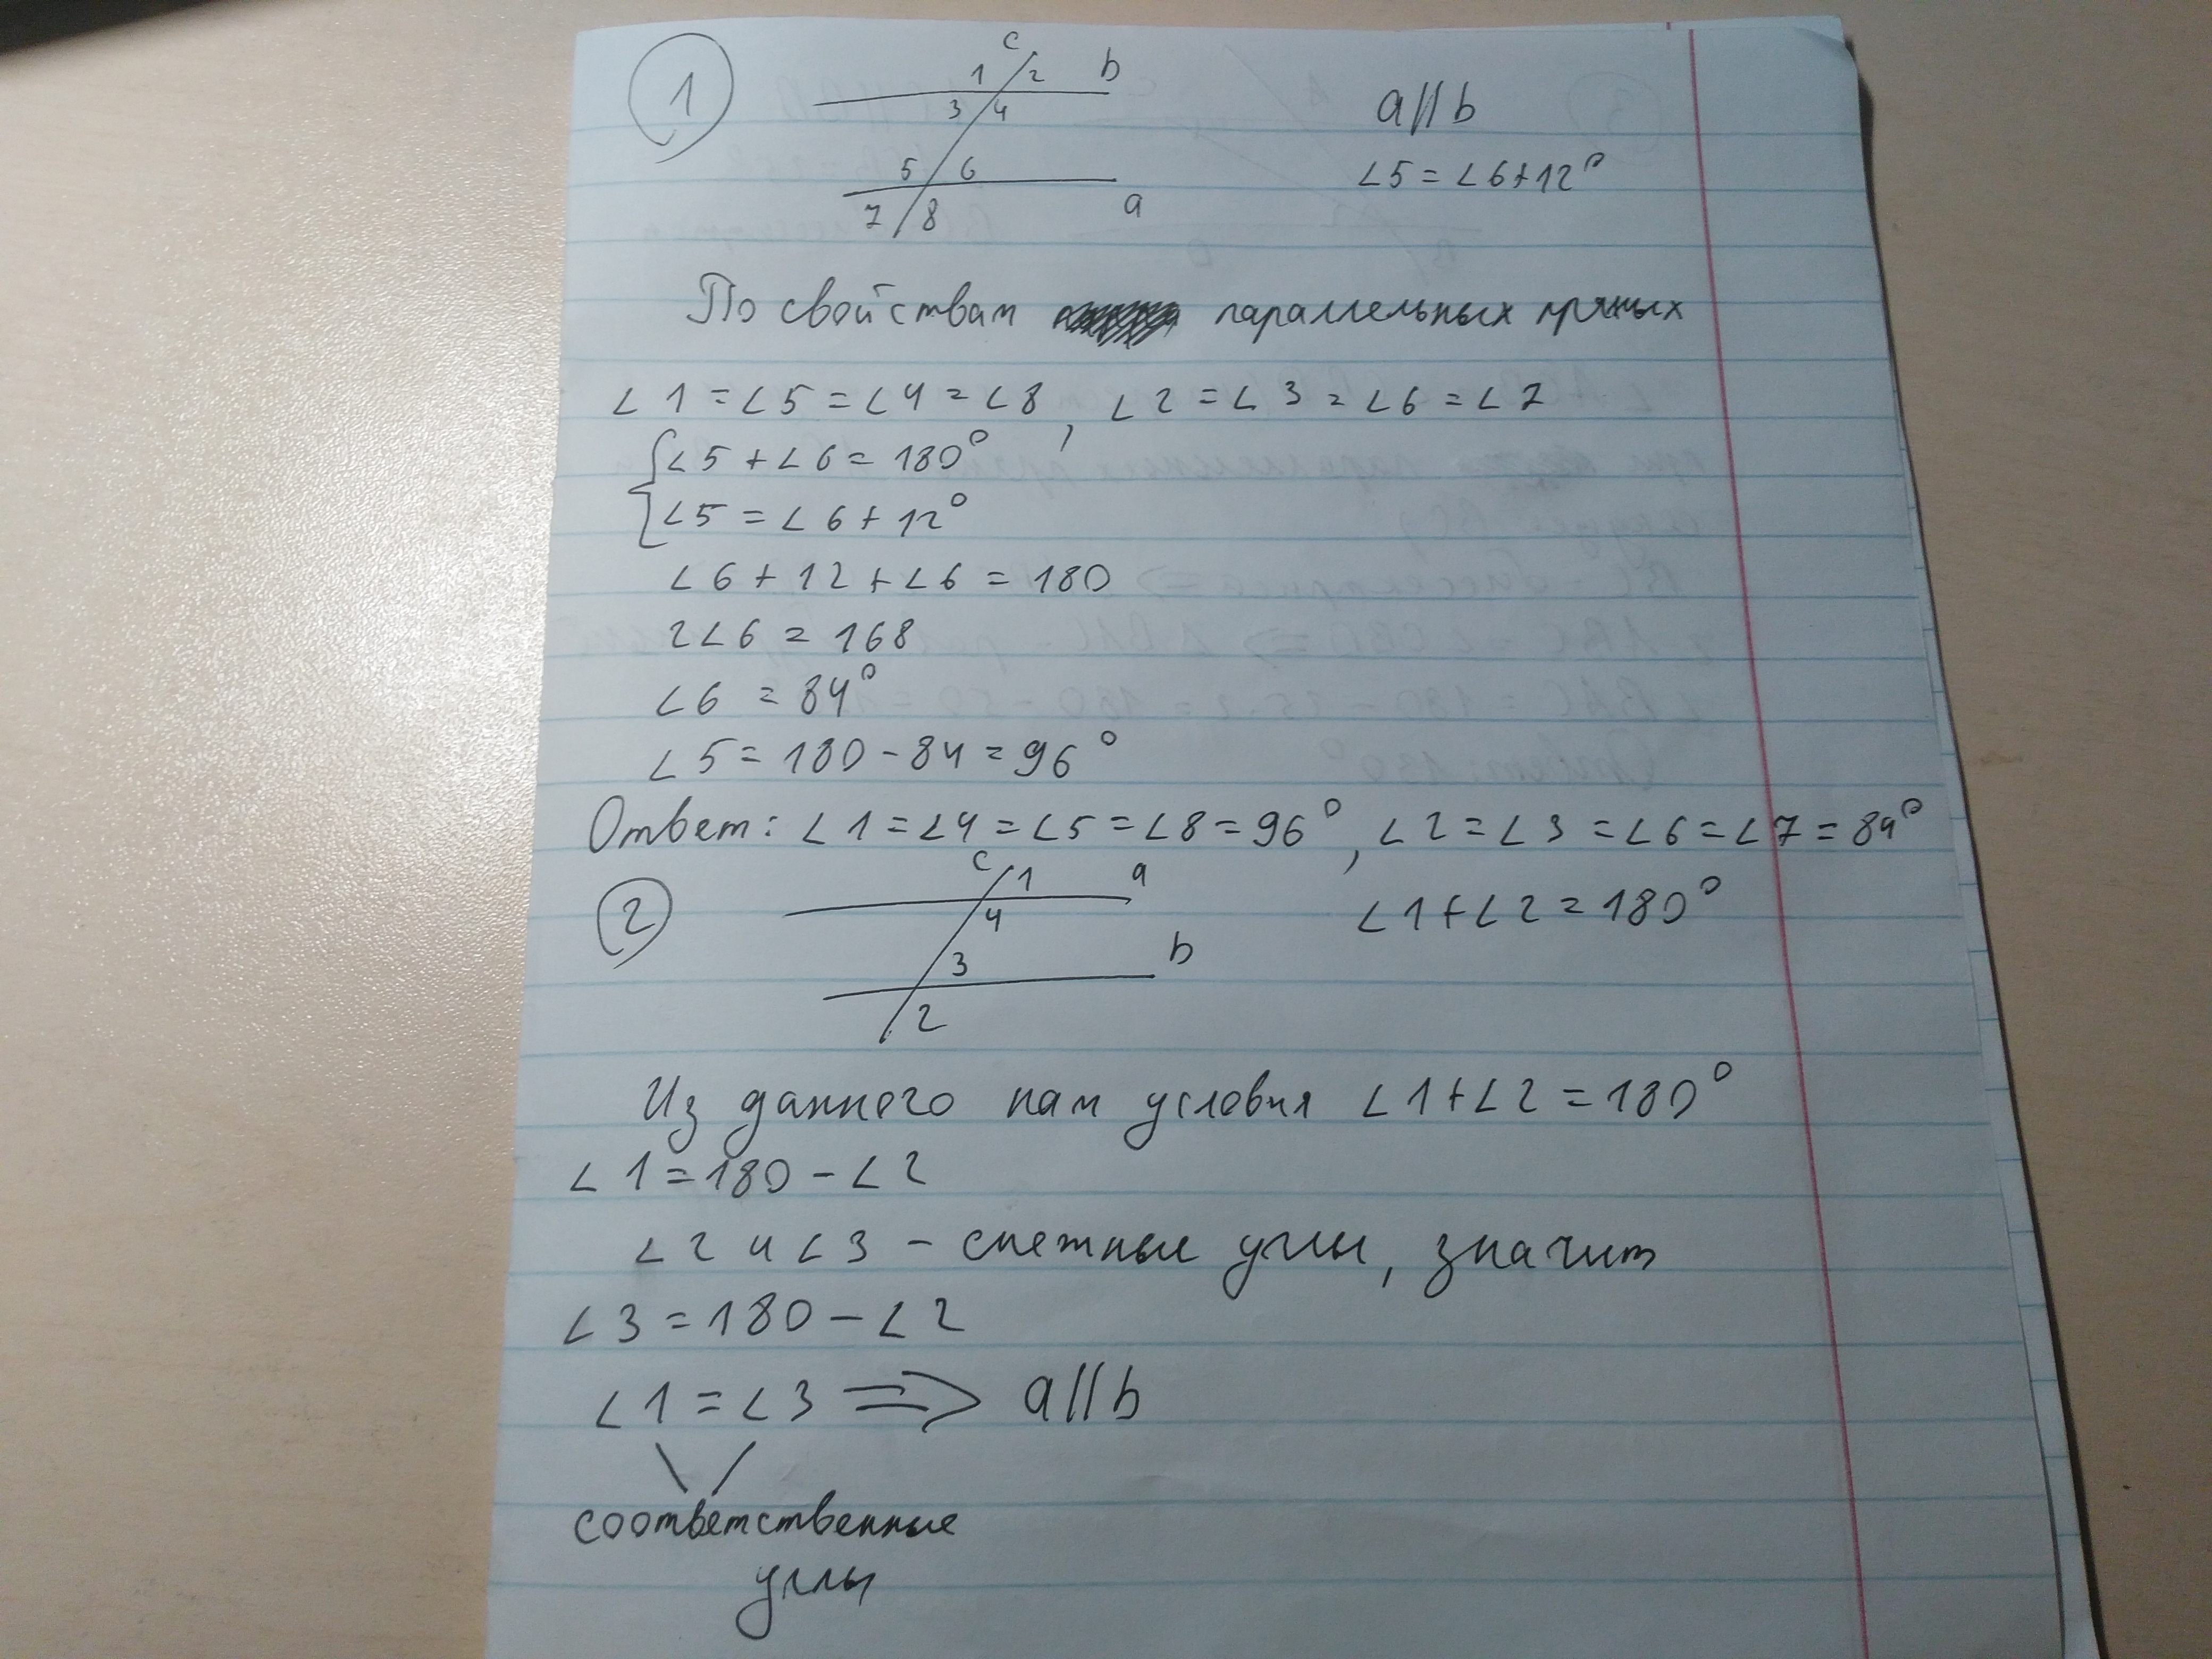 1
c
1 2 b
3 4
a || b
5 6
∠5 = ∠6 + 12°
7 8 a
По свойствам параллельных прямых
∠1 = ∠5 = ∠4 = ∠8, ∠2 = ∠3 = ∠6 = ∠7
{∠5 + ∠6 = 180°
∠5 = ∠6 + 12°
∠6 + 12 + ∠6 = 180
2∠6 = 168
∠6 = 84°
∠5 = 180 - 84 = 96°
Ответ: ∠1 = ∠4 = ∠5 = ∠8 = 96°, ∠2 = ∠3 = ∠6 = ∠7 = 84°
2
c 1 a
4
∠1 + ∠2 = 180°
3 b
2
Из данного нам условия ∠1 + ∠2 = 180°
∠1 = 180 - ∠2
∠2 и ∠3 - смежные углы, значит
∠3 = 180 - ∠2
∠1 = ∠3 => a || b
соответственные
углы